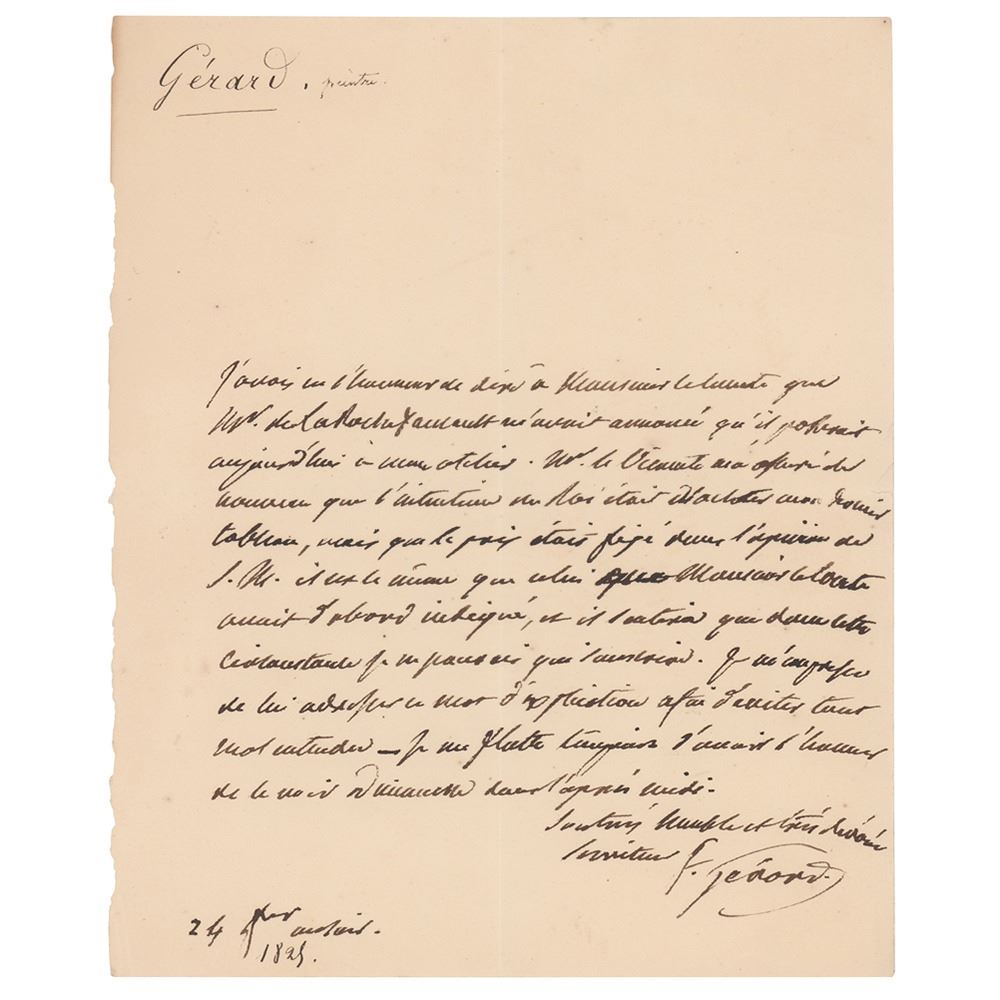 Gérard. peintre.
J'avais eu l'honneur de dire à Monsieur le Comte que
Mr. de La Rochefaucault m'avait annoncé qu'il passerait
aujourd'hui à mon atelier. Mr. le Vicomte m'a assuré de
nouveau que l'intention du Roi était d'acheter mon dernier
tableau, mais que le prix était fixé dans l'opinion de
S. M. il est le même que celui que Monsieur le Comte
avait d'abord indiqué, et il sentira que dans cette
circonstance je ne pouvais que souscrire. Je m'empresse
de lui adresser ce mot d'explication afin d'éviter tout
mal entendu — je me flatte toujours d'avoir l'honneur
de le voir Dimanche dans l'après midi.
Son très humble et très dévoué
serviteur F. Gérard.
24 au soir.
182